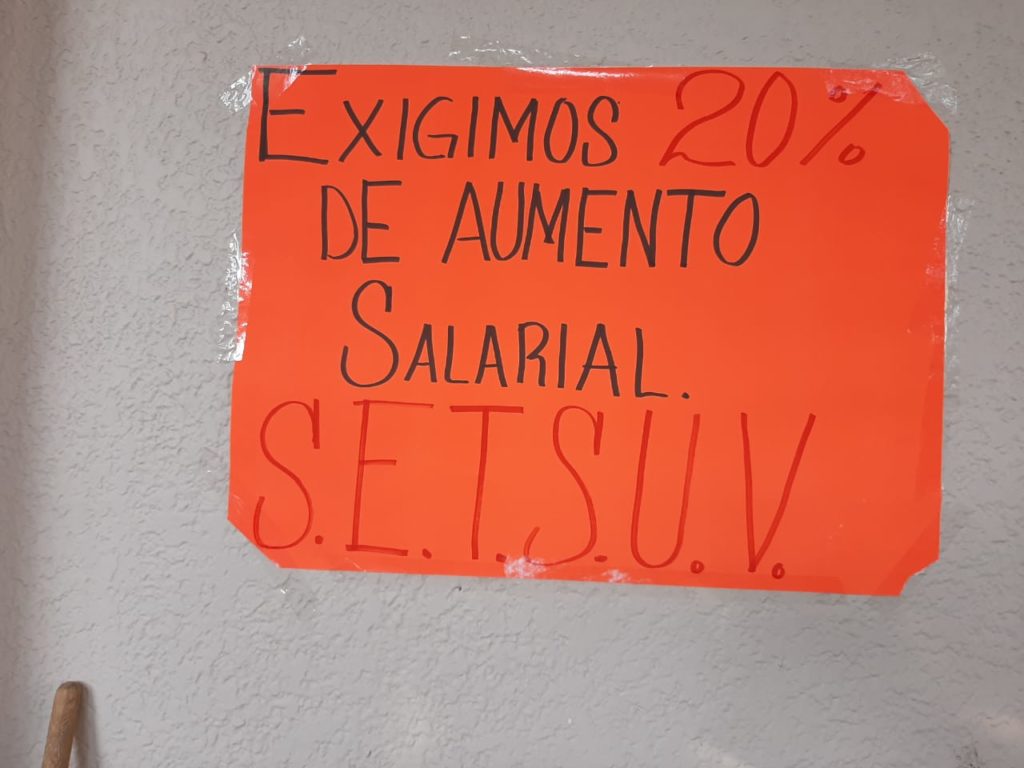 EXIGIMOS 20%
DE AUMENTO
SALARIAL.
S.E.T.S.U.V.